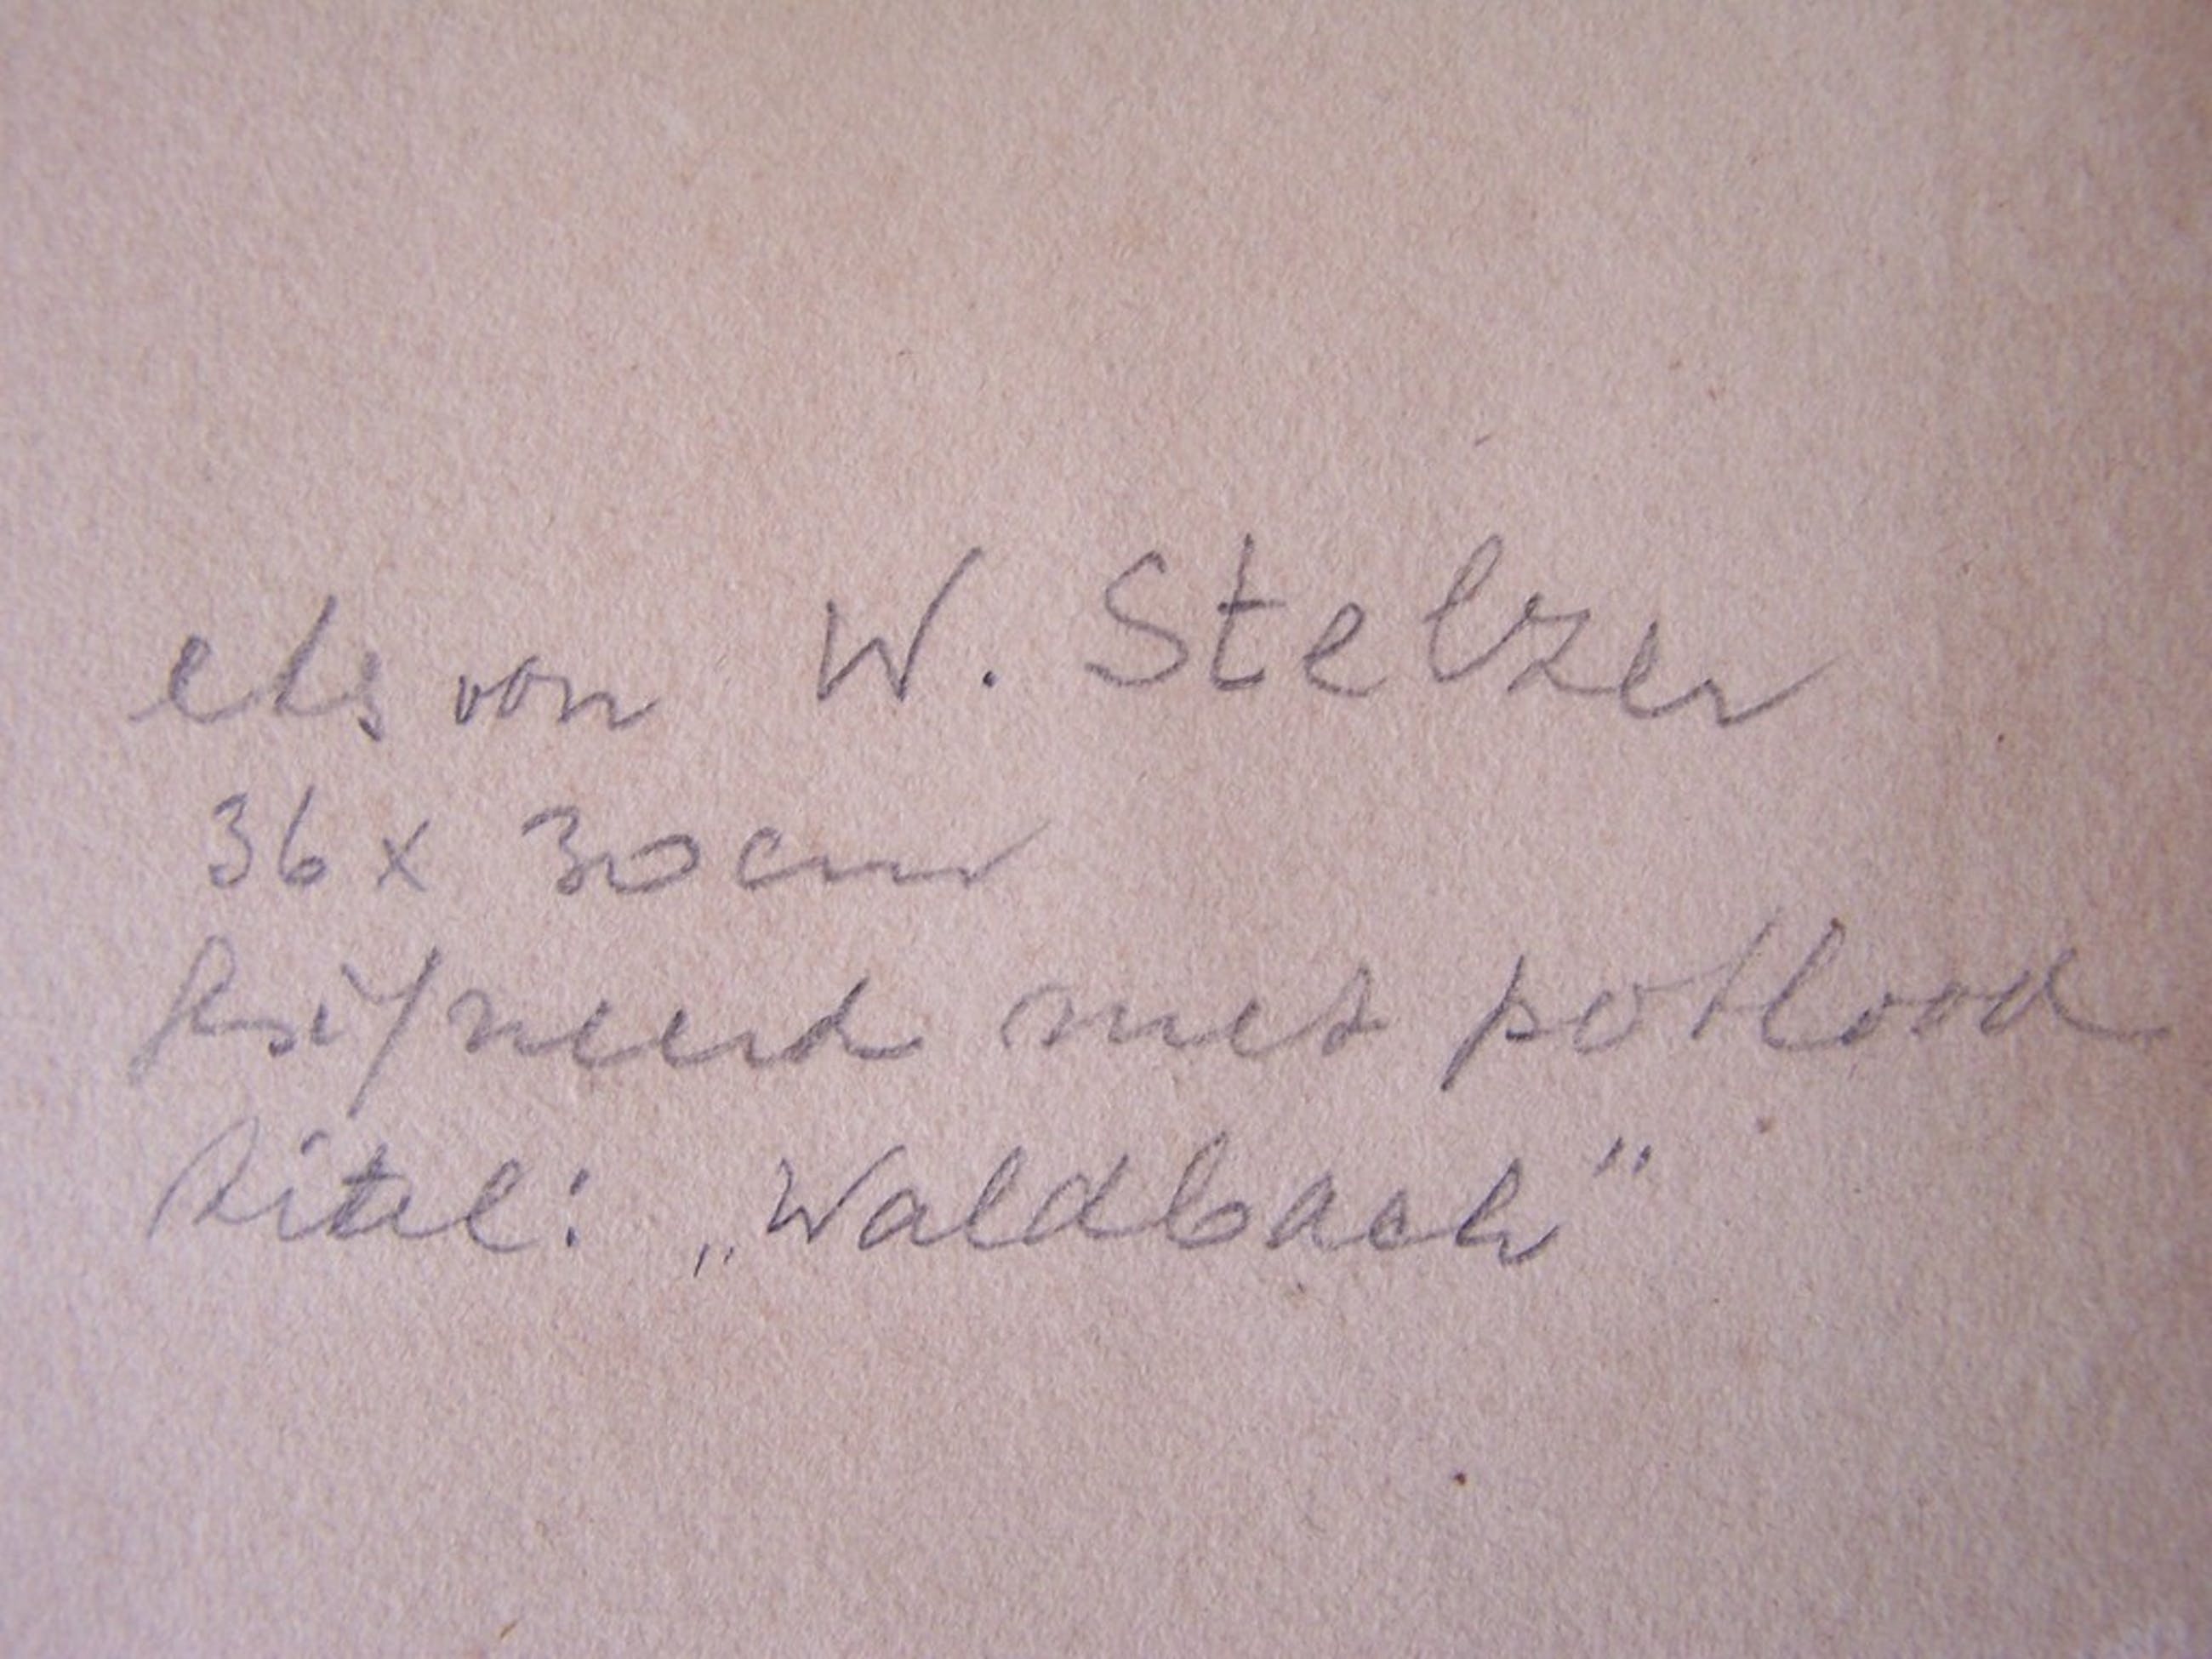 ets von W. Stelzer
36 x 30 cm
Gesigneerd met potlood
titel: „Waldbach”